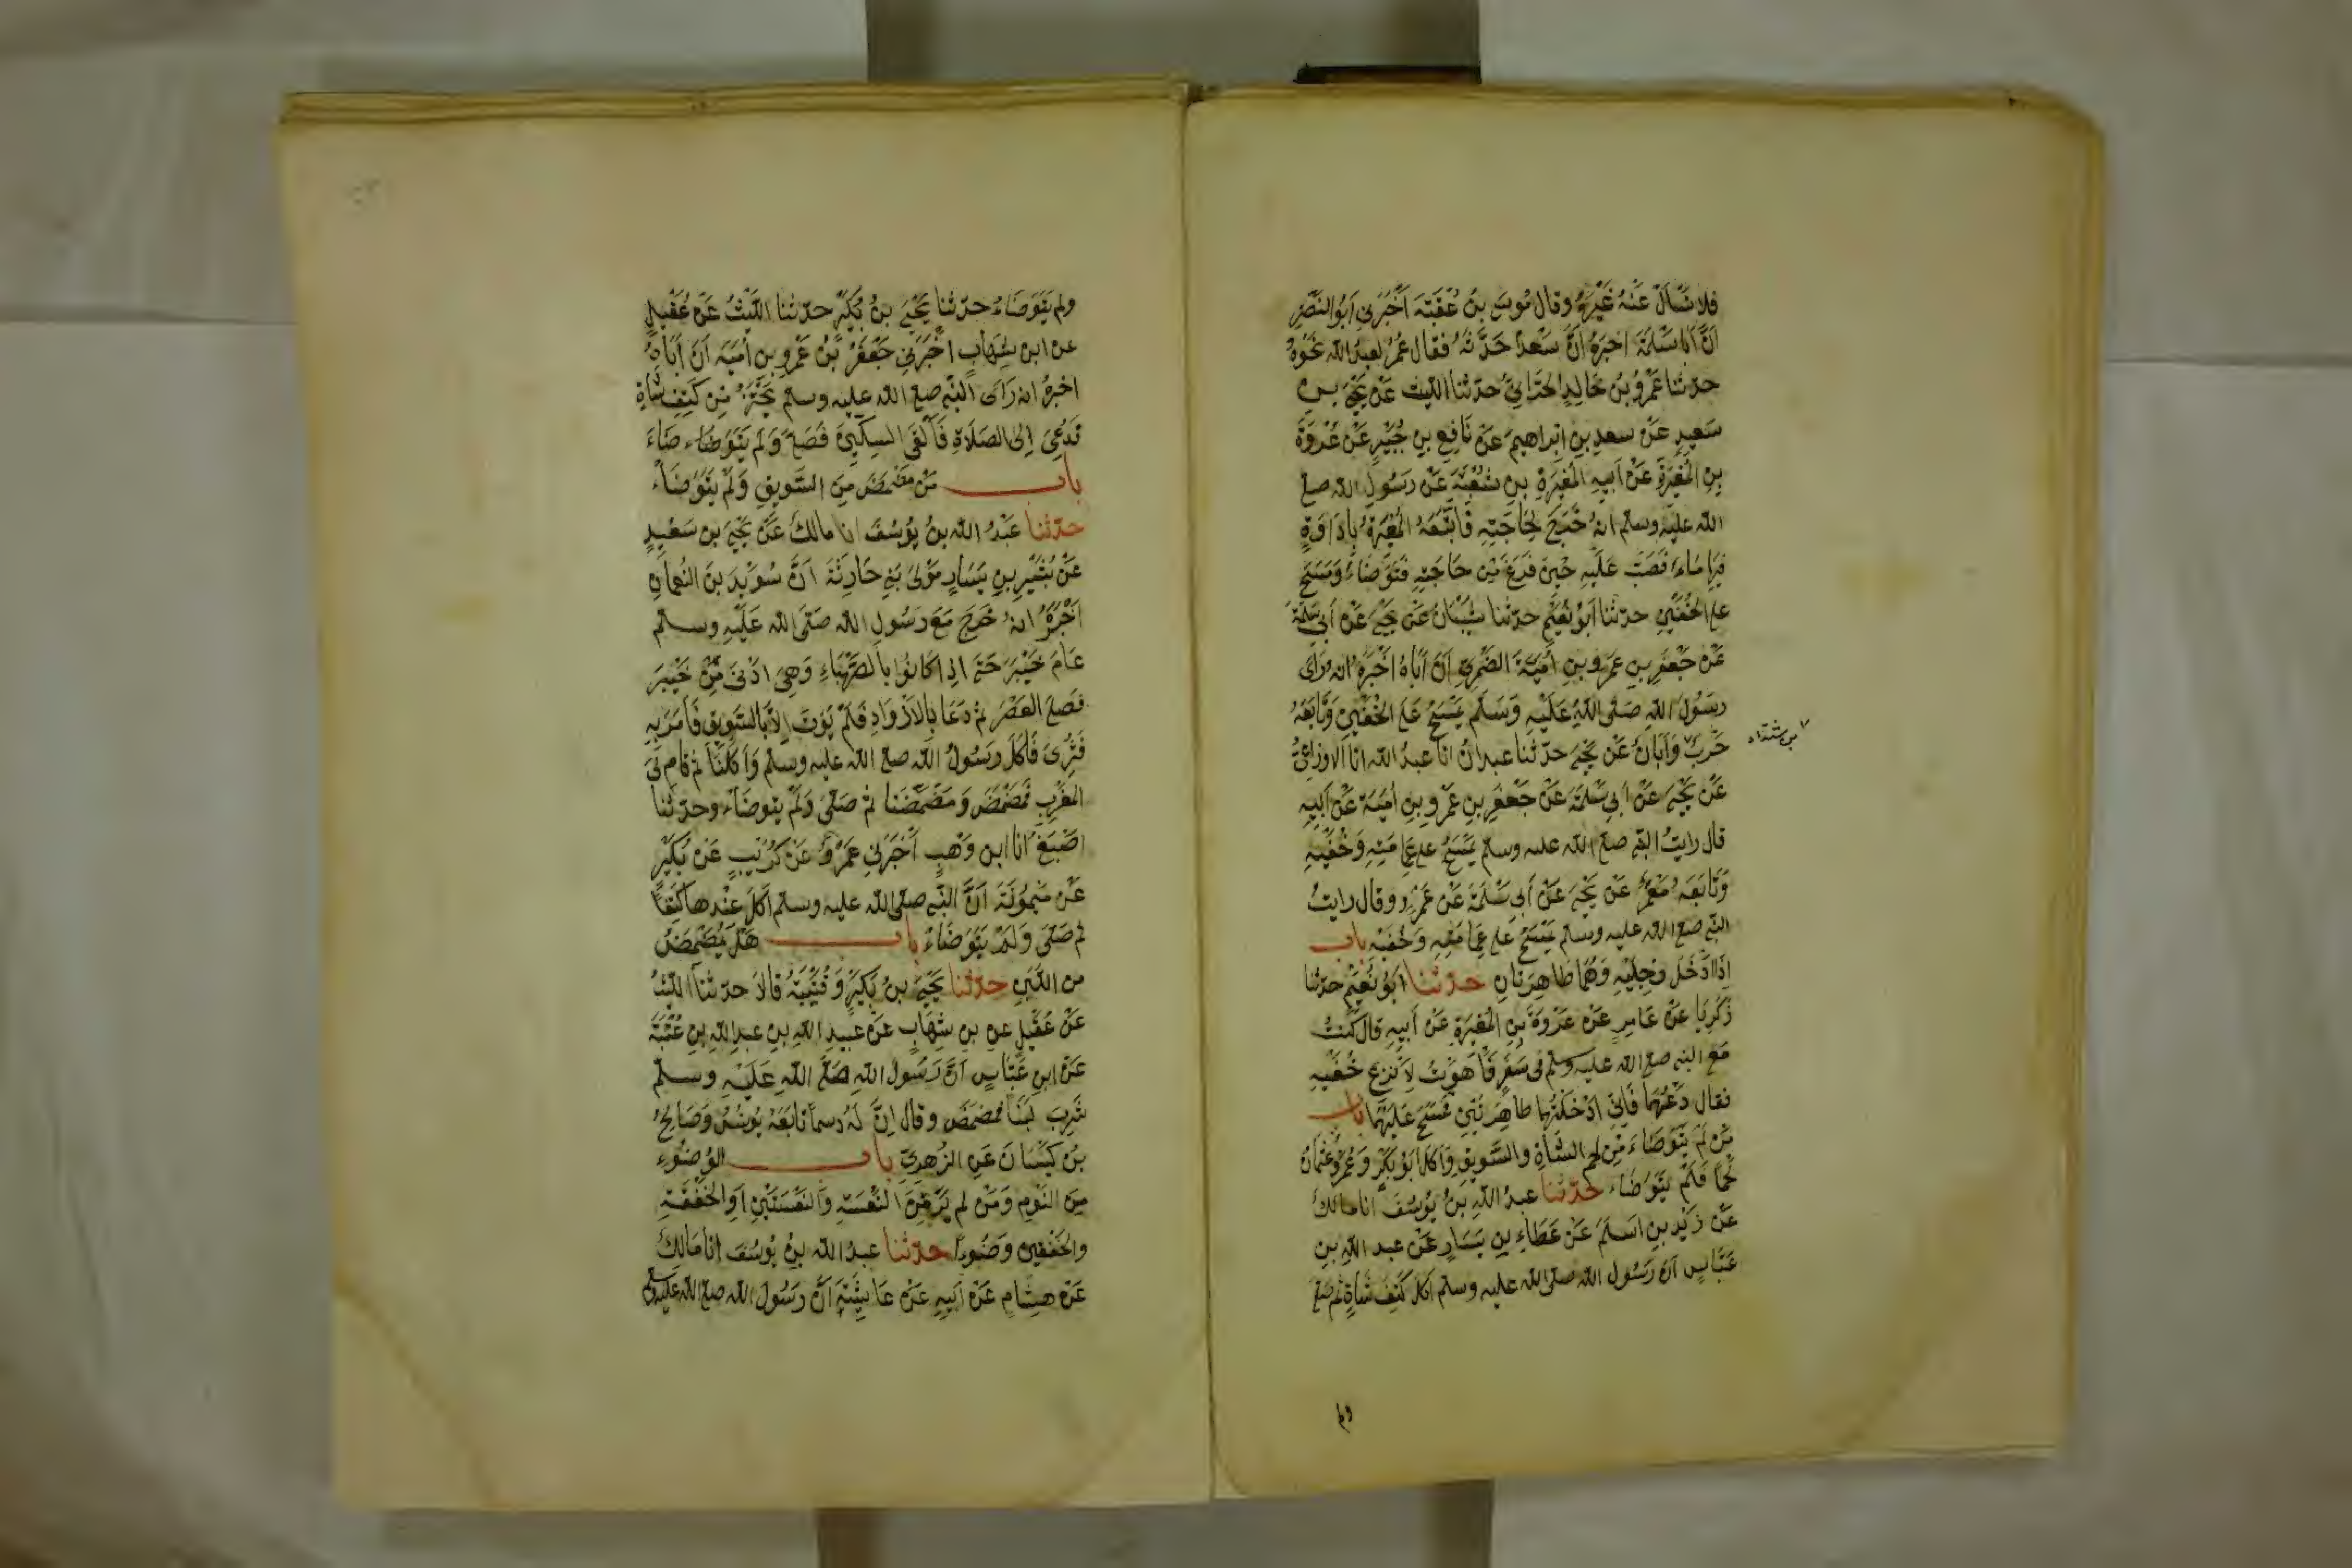 فلا تسأل عنه غيره وقال موسى بن عقبة اخبرني ابو النضر
ان ابا سلمة اخبره ان سعدا حدثه فقال عمر لعبد الله نحوه
حدثنا عمرو بن خالد الحراني حدثنا الليث عن يحيى بن
سعيد عن سعد بن ابراهيم عن نافع بن جبير عن عروة
بن المغيرة عن ابيه المغيرة بن شعبة عن رسول الله صلى
الله عليه وسلم انه خرج لحاجته فاتبعه المغيرة باداوة
فيها ماء فصب عليه حين فرغ من حاجته فتوضاء ومسح
على الخفين حدثنا ابو نعيم حدثنا شيبان عن يحيى عن ابي سلمة
عن جعفر بن عمرو بن امية الضمري ان اباه اخبره انه راى
رسول الله صلى الله عليه وسلم يمسح على الخفين وتابعه
حرب وابان عن يحيى حدثنا عبدان انا عبد الله انا الاوزاعي
بن شداد
عن يحيى عن ابي سلمة عن جعفر بن عمرو بن امية عن ابيه
قال رايت النبي صلى الله عليه وسلم يمسح على عمامته وخفيه
وتابعه معمر عن يحيى عن ابي سلمة عن عمرو وقال رايت
النبي صلى الله عليه وسلم يمسح على عمامته وخفيه باب
اذا ادخل رجليه وهما طاهرتان حدثنا ابو نعيم حدثنا
زكريا عن عامر عن عروة بن المغيرة عن ابيه قال كنت
مع النبي صلى الله عليه وسلم في سفر فاهويت لانزع خفيه
فقال دعهما فاني ادخلتهما طاهرتين فمسح عليهما باب
من لم يتوضاء من لحم الشاة والسويق واكل ابو بكر وعمر وعثمان
لحما فلم يتوضاء حدثنا عبد الله بن يوسف انا مالك
عن زيد بن اسلم عن عطاء بن يسار عن عبد الله بن
عباس ان رسول الله صلى الله عليه وسلم اكل كتف شاة ثم صلى
ولم
ولم يتوضاء حدثنا يحيى بن بكير حدثنا الليث عن عقيل
عن ابن شهاب اخبرني جعفر بن عمرو بن امية ان اباه
اخبره انه راى النبي صلى الله عليه وسلم يحتز من كتف شاة
فدعي الى الصلاة فالقى السكين فصلى ولم يتوضاء
باب من مضمض من السويق ولم يتوضاء
حدثنا عبد الله بن يوسف انا مالك عن يحيى بن سعيد
عن بشير بن يسار مولى بني حارثة ان سويد بن النعمان
اخبره انه خرج مع رسول الله صلى الله عليه وسلم
عام خيبر حتى اذا كانوا بالصهباء وهي ادنى من خيبر
فصلى العصر ثم دعا بالازواد فلم يوت الا بالسويق فامر به
فثري فاكل رسول الله صلى الله عليه وسلم واكلنا ثم قام الى
المغرب فمضمض ومضمضنا ثم صلى ولم يتوضاء وحدثنا
اصبغ انا ابن وهب اخبرني عمرو عن كريب عن بكير
عن ميمونة ان النبي صلى الله عليه وسلم اكل عندها كتفا
ثم صلى ولم يتوضاء باب هل يمضمض
من اللبن حدثنا يحيى بن بكير وقتيبة قالا حدثنا الليث
عن عقيل عن بن شهاب عن عبيد الله بن عبد الله بن عتبة
عن ابن عباس ان رسول الله صلى الله عليه وسلم
شرب لبنا فمضمض وقال ان له دسما تابعه يونس وصالح
بن كيسان عن الزهري باب الوضوء
من النوم ومن لم ير من النعسة والنعستين او الخفقة
والخفقين وضوءا حدثنا عبد الله بن يوسف انا مالك
عن هشام عن ابيه عن عايشة ان رسول الله صلى الله عليه وسلم